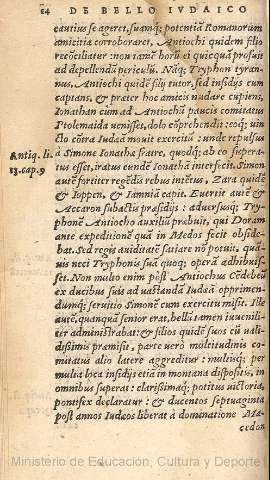 24 DE BELLO IVDAICO
cautius se ageret, suamq; potentiã Romanorum
amicitia corroboraret, Antiochi quidem filio
recõciliatur: non tamẽ horũ ei quicquã profuit
ad depellendũ periculũ. Nãq; Tryphon tyran-
nus, Antiochi quidẽ filij tutor, sed insidijs eum
captans, & præter hoc amicis nudare cupiens,
Ionathan cùm ad Antiochũ paucis comitatus
Ptolemaida uenisset, dolo cõprehendit: eoq; uin
cto cõtra Iudæã mouit exercitũ: unde repulsus
Antiq. li. à Simone Ionathæ fratre, quodq; ab eo supera-
13. cap. 9 tus esset, iratus eundẽ Ionathã interfecit. Simon
autẽ fortiter regẽdis rebus intẽtus, Zara quidẽ
& Ioppen, & Iamnia capit. Euertit autẽ &
Accaron subactis præsidijs: aduersusq; Tryphõ
nẽ Antiocho auxiliũ præbuit, qui Doram
ante expeditionẽ quã in Medos fecit obside
bat. Sed regis auiditatẽ satiare nõ potuit, quã-
uis neci Tryphonis sua quoq; operã adhibuis-
set. Non multo enim pòst Antiochus Cẽdebeũ
ex ducibus suis ad uastandã Iudæã opprimen-
dumq; seruitio Simonẽ cum exercitu misit. Ille
autẽ, quanquã senior erat, bellũ tamen iuuenili-
ter administrabat: & filios quidẽ suos cũ uali-
dissimis præmisit, parte uerò multitudinis co-
mitatus alio latere aggreditur: multisq; per
multa loca insidijs etiã in montana dispositis, in
omnibus superat: clarissimaq; potitus uictoria,
pontifex declaratur: & ducentos septuaginta
post annos Iudæos liberat à dominatione Ma-
cedon
Ministerio de Educación, Cultura y Deporte